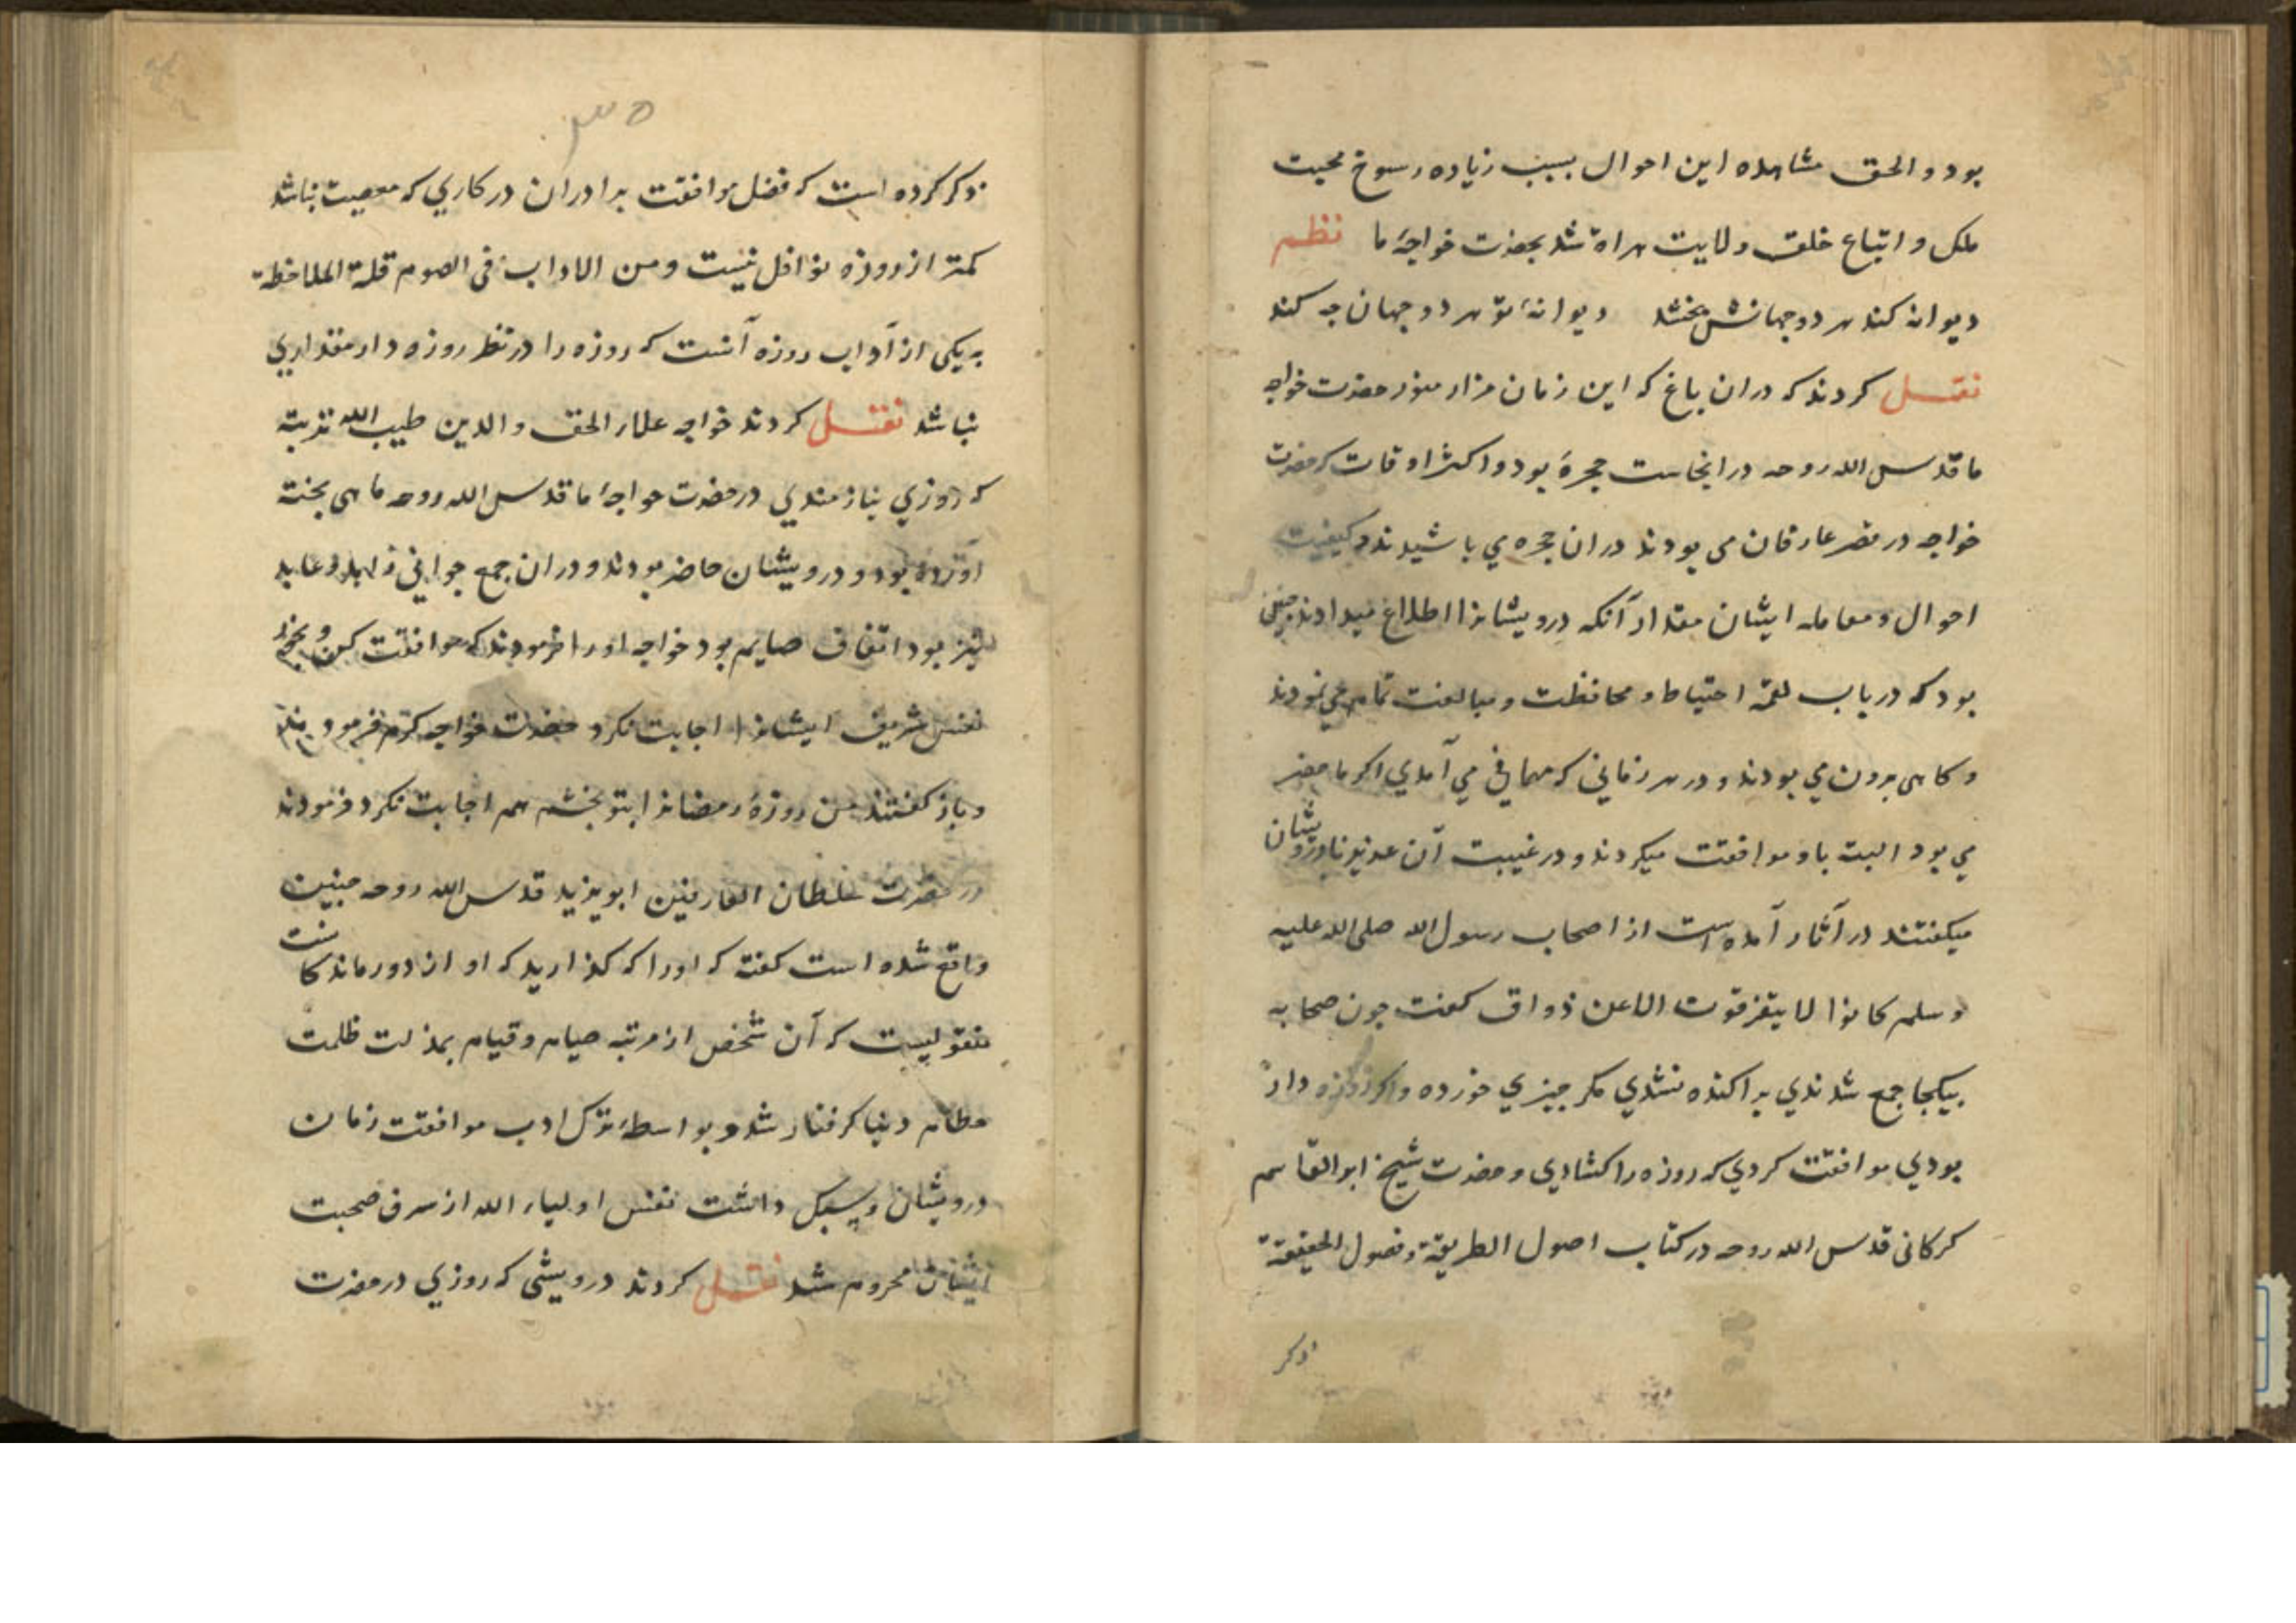 بود والحق مشاهده این احوال بسبب زیاده رسوخ محبت
ملک و اتباع خلق ولایت هراة شد بحضرت خواجهٔ ما نظم
دیوانه کند هر دو جهانش بخشد دیوانهٔ تو هر دو جهان چه کند
نقل کردند که دران باغ که این زمان مزار منور حضرت خواجه
ما قدس الله روحه در انجاست حجرهٔ بود و اکثر اوقات که حضرت
خواجه در قصر عارفان می بودند دران حجره می باشیدند و کیفیت
احوال و معامله ایشان مقدار آنکه درویشانرا اطلاع میدادند چنین
بود که در باب لقمه احتیاط و محافظت و مبالغت تمام می نمودند
و کاهی برون می بودند و در هر زمانی که مهمانی می آمدی اکر ما حضر
می بود البته باو موافقت میکردند و در غیبت آن عزیز با درویشان
میکفتند در آثار آمده است از اصحاب رسول الله صلی الله علیه
و سلم کانوا لا یتفرقون الا عن ذواق کفت چون صحابه
بیکجا جمع شدندی براکنده نشدی مکر چیزی خورده و اکر روزه دار
بودی موافقت کردی که روزه را کشادی و حضرت شیخ ابو القاسم
کرکانی قدس الله روحه در کتاب اصول الطریقة و فصول الحقیقة
ذکر
۳۵
ذکر کرده است که فضل موافقت برادران در کاری که معصیت نباشد
کمتر از روزه نوافل نیست و من الاداب فی الصوم قلة الملاحظة
یکی از آداب روزه آنست که روزه را در نظر روزه دار مقداری
نباشد نقل کردند خواجه علاء الحق و الدین طیب الله تربته
که روزی نیازمندی در حضرت خواجهٔ ما قدس الله روحه ماهی پخته
آورده بود و درویشان حاضر بودند و دران جمع جوانی زاهد و عابد
نیز بود اتفاق صایم بود خواجه او را فرمودند که موافقت کن و بخور
نفس شریف ایشانرا اجابت نکرد حضرت خواجه کرم فرمود
و باز کفتند من روزهٔ رمضانرا بتو بخشم هم اجابت نکرد فرمودند
در حضرت سلطان العارفین ابو یزید قدس الله روحه چنین
واقع شده است کفته که او را که کذارید که او از دور ماند کانست
منقولیست که آن شخص از مرتبه صیام و قیام بمذلت ظلمت
حطام دنیا کرفتار شد و بواسطهٔ ترک ادب موافقت زمان
درویشان و سبک داشت نفس اولیاء الله از شرف صحبت
ایشان محروم شد نقل کردند درویشی که روزی در حضرت